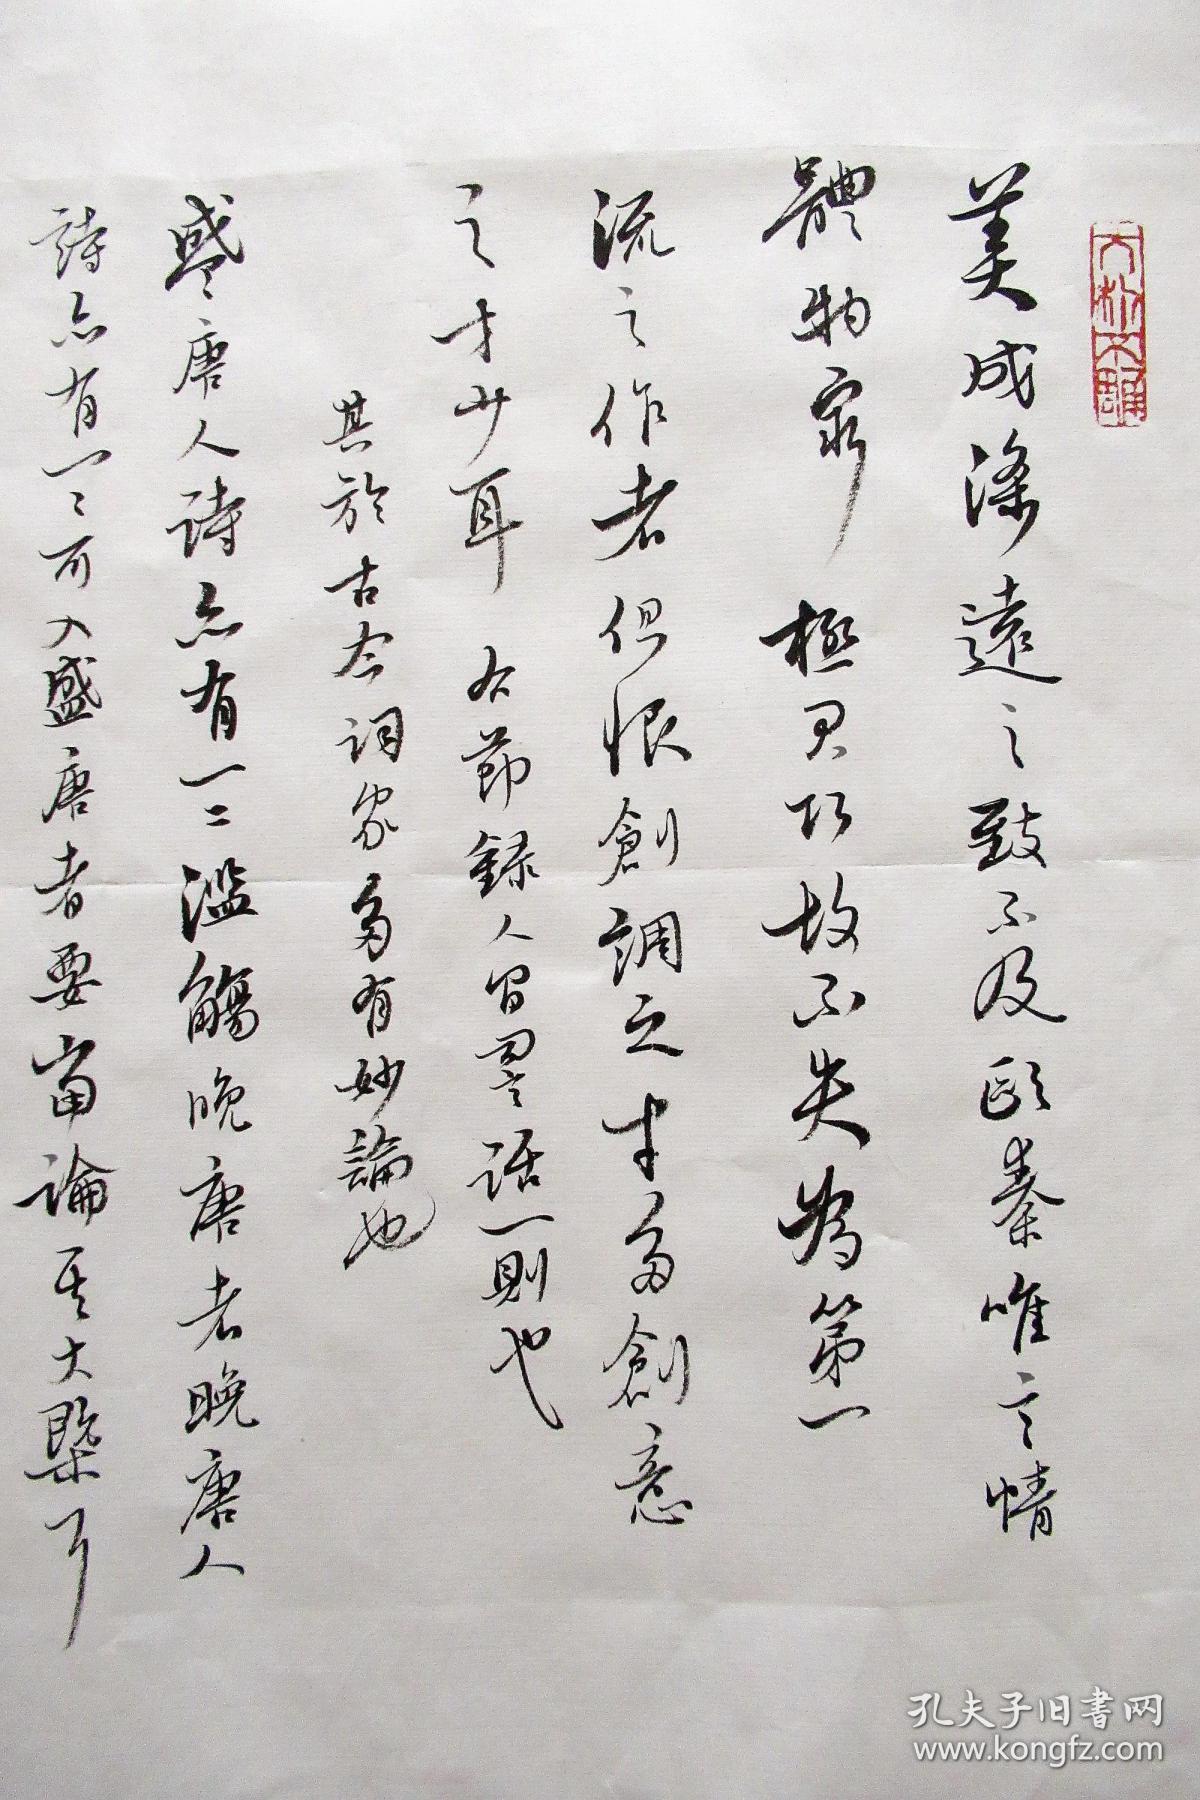 大朴不雕
美成深遠之致不及歐秦唯言情
體物窮極工巧故不失為第一
流之作者但恨創調之才多創意
之才少耳 右節錄人間詞話一則也
其於古今詞家多有妙論也
盛唐人詩亦有一二濫觴晚唐者晚唐人
詩亦有一二可入盛唐者要當論其大槩耳
孔夫子旧书网
www.kongfz.com